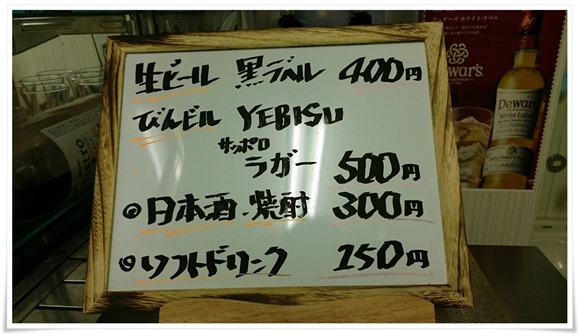 生ビール 黒ラベル 400円
びんビル YEBISU
サッポロ
ラガー 500円
◎日本酒・焼酎 300円
◎ソフトドリンク 150円
Dewar's
Dewar's
White Label